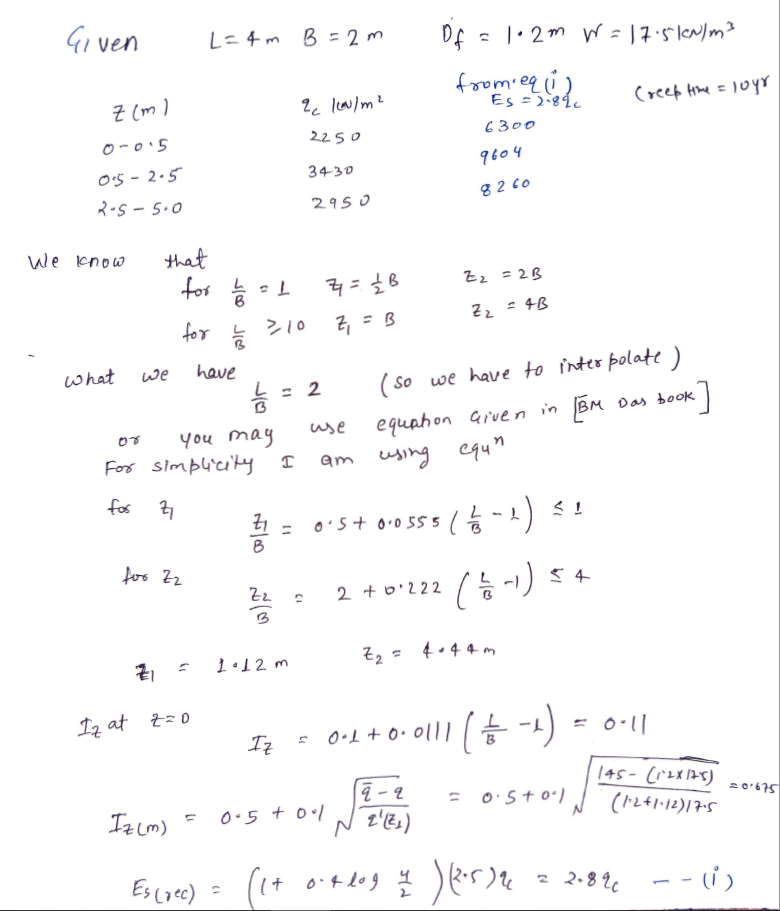 Given L = 4 m B = 2 m Df = 1.2 m W = 17.5 kN/m³
Z (m) qc kN/m² from eq (i) Es = 2.8qc Creep time = 10 yr
0 - 0.5 2250 6300
0.5 - 2.5 3430 9604
2.5 - 5.0 2950 8260
We know that
for L/B = 1 Z1 = 1/2 B Z2 = 2B
for L/B ≥ 10 Z1 = B Z2 = 4B
What we have
L/B = 2 (so we have to interpolate)
or you may use equation Given in [BM Das book]
For simplicity I am using equⁿ
for Z1
Z1/B = 0.5 + 0.0555 (L/B - 1) ≤ 1
for Z2
Z2/B = 2 + 0.222 (L/B - 1) ≤ 4
Z1 = 1.12 m Z2 = 4.44 m
Iz at Z = 0
Iz = 0.1 + 0.0111 (L/B - 1) = 0.11
Iz(m) = 0.5 + 0.1 √((q̄ - q)/(q'(Z1))) = 0.5 + 0.1 √((145 - (1.2x17.5))/((1.2+1.12)17.5)) = 0.675
Es(rec) = (1 + 0.4 log 4/2)(2.5)qc = 2.8qc -- (i)